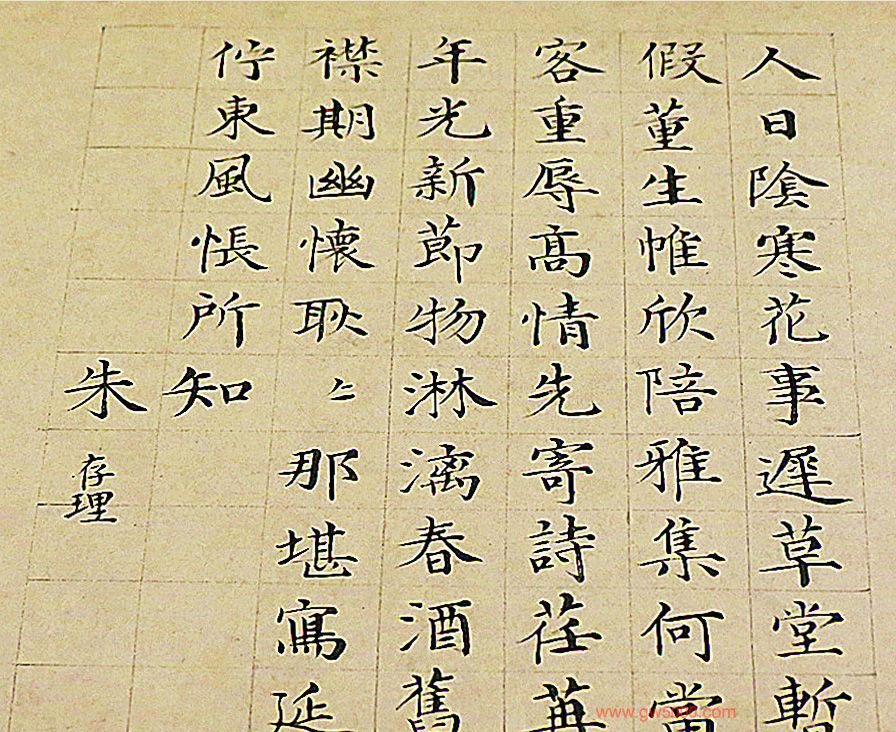 人日陰寒花事遲草堂暫
假董生帷欣陪雅集何當
客重辱高情先寄詩荏苒
年光新節物淋漓春酒舊
襟期幽懷耿〻那堪寫延
佇東風悵所知
朱存理
www.gw5000.com